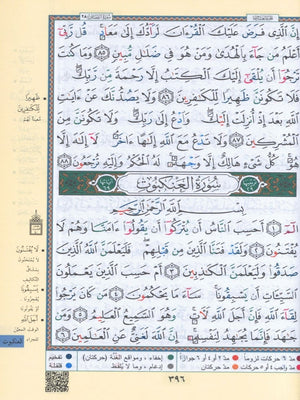 إِنَّ ٱلَّذِى فَرَضَ عَلَيْكَ ٱلْقُرْءَانَ لَرَآدُّكَ إِلَىٰ مَعَادٍ ۚ قُل رَّبِّىٓ
أَعْلَمُ مَن جَآءَ بِٱلْهُدَىٰ وَمَنْ هُوَ فِى ضَلَـٰلٍ مُّبِينٍ ٨٥ وَمَا كُنتَ
تَرْجُوٓا۟ أَن يُلْقَىٰٓ إِلَيْكَ ٱلْكِتَـٰبُ إِلَّا رَحْمَةً مِّن رَّبِّكَ ۖ
فَلَا تَكُونَنَّ ظَهِيرًا لِّلْكَـٰفِرِينَ ٨٦ وَلَا يَصُدُّنَّكَ عَنْ ءَايَـٰتِ
ٱللَّهِ بَعْدَ إِذْ أُنزِلَتْ إِلَيْكَ ۖ وَٱدْعُ إِلَىٰ رَبِّكَ ۖ وَلَا تَكُونَنَّ
مِنَ ٱلْمُشْرِكِينَ ٨٧ وَلَا تَدْعُ مَعَ ٱللَّهِ إِلَـٰهًا ءَاخَرَ ۘ لَآ إِلَـٰهَ إِلَّا
هُوَ ۚ كُلُّ شَىْءٍ هَالِكٌ إِلَّا وَجْهَهُۥ ۚ لَهُ ٱلْحُكْمُ وَإِلَيْهِ تُرْجَعُونَ ٨٨
سُورَةُ الْعَنْكَبُوتِ
بِسْمِ ٱللَّهِ ٱلرَّحْمَـٰنِ ٱلرَّحِيمِ
الٓمٓ ١ أَحَسِبَ ٱلنَّاسُ أَن يُتْرَكُوٓا۟ أَن يَقُولُوٓا۟ ءَامَنَّا وَهُمْ لَا
يُفْتَنُونَ ٢ وَلَقَدْ فَتَنَّا ٱلَّذِينَ مِن قَبْلِهِمْ ۖ فَلَيَعْلَمَنَّ ٱللَّهُ ٱلَّذِينَ
صَدَقُوا۟ وَلَيَعْلَمَنَّ ٱلْكَـٰذِبِينَ ٣ أَمْ حَسِبَ ٱلَّذِينَ يَعْمَلُونَ
ٱلسَّيِّـَٔاتِ أَن يَسْبِقُونَا ۚ سَآءَ مَا يَحْكُمُونَ ٤ مَن كَانَ يَرْجُوا۟
لِقَآءَ ٱللَّهِ فَإِنَّ أَجَلَ ٱللَّهِ لَـَٔاتٍ ۚ وَهُوَ ٱلسَّمِيعُ ٱلْعَلِيمُ ٥ وَمَن
جَـٰهَدَ فَإِنَّمَا يُجَـٰهِدُ لِنَفْسِهِۦٓ ۚ إِنَّ ٱللَّهَ لَغَنِىٌّ عَنِ ٱلْعَـٰلَمِينَ ٦
ظَهِيرًا
لِّلْكَـٰفِرِينَ
لَا يُفْتَنُونَ
يَسْبِقُونَا
أَجَلَ ٱللَّهِ
العنكبوت
تفخيم
قلقلة
إخفاء، ومواقع الغُنَّة (حركتان)
إدغام، وما لا يُلفَظ
مدّ ٦ حركات لزوماً
مدّ ٢ أو ٤ أو ٦ جوازاً
مدّ حركتان
٣٩٦